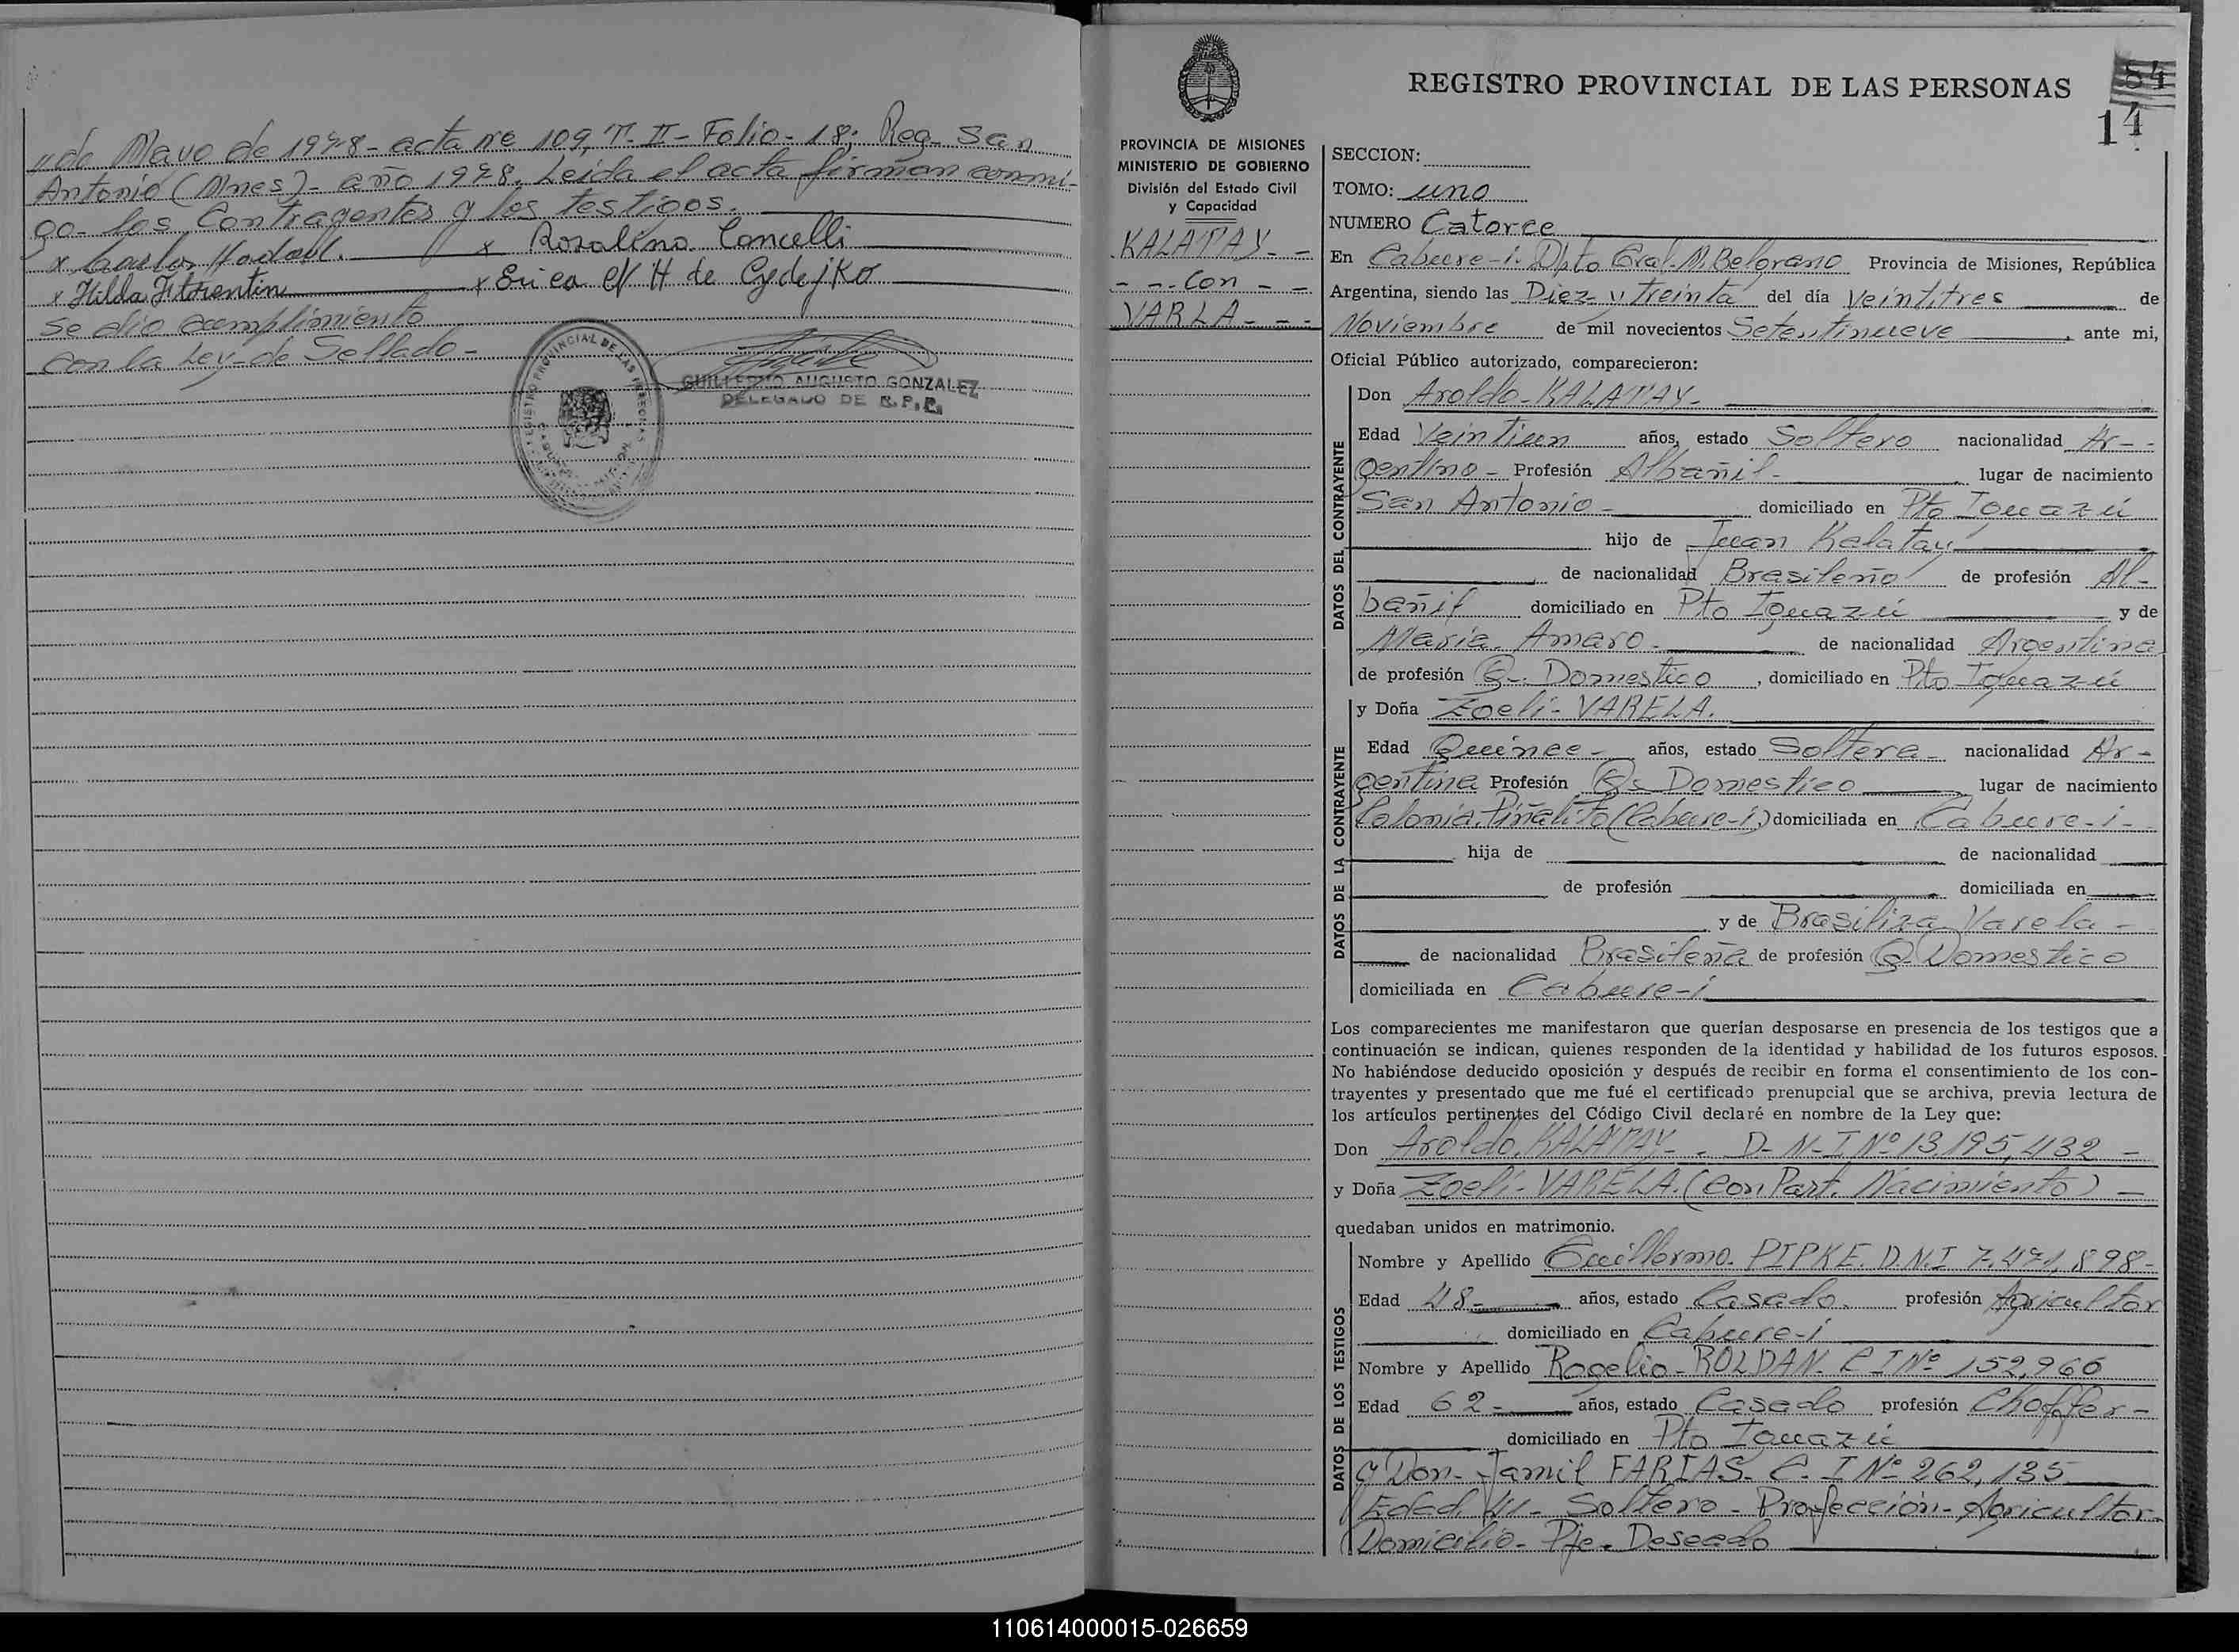 " de Mayo de 1978 - acta nº 109, T. II - Folio - 18; Reg. San
Antonio (Mnes) - año 1978. Leída el acta firman conmi-
go - los Contrayentes y los testigos.
x Carlos x Rosalino Concelli
x Hilda Florentin x Erica H de Cydejko
Se dio cumplimiento
con la Ley - de Sellado -
REGISTRO PROVINCIAL DE LAS PERSONAS
GUILLERMO AUGUSTO GONZALEZ
DELEGADO DE R.P.P.
REGISTRO PROVINCIAL DE LAS PERSONAS
84
14
PROVINCIA DE MISIONES
MINISTERIO DE GOBIERNO
División del Estado Civil
y Capacidad
KALATAY - -
- - Con - -
VARLA - - -
SECCION:
TOMO: uno
NUMERO Catorce
En Cabure-i. Dpto Gral. M. Belgrano Provincia de Misiones, República
Argentina, siendo las Diez y treinta del día Veintitres de
Noviembre de mil novecientos Setentinueve, ante mi,
Oficial Público autorizado, comparecieron:
DATOS DEL CONTRAYENTE
Don Aroldo - KALATAY -
Edad Veintiun años, estado Soltero nacionalidad Ar- -
gentino - Profesión Albañil - lugar de nacimiento
San Antonio - domiciliado en Pto Iguazú
hijo de Juan Kalatay
de nacionalidad Brasileño de profesión Al-
bañil domiciliado en Pto Iguazú y de
Maria Amaro - de nacionalidad Argentina
de profesión Q. Domestico, domiciliado en Pto Iguazú
DATOS DE LA CONTRAYENTE
y Doña Zoeli - VARELA.
Edad Quince - años, estado Soltera - nacionalidad Ar-
gentina Profesión Q. Domestico lugar de nacimiento
Colonia Piñalito (Cabure-i) domiciliada en Cabure-i -
hija de de nacionalidad
de profesión domiciliada en
y de Brasiliza Varela -
de nacionalidad Brasileña de profesión Q. Domestico
domiciliada en Cabure-i
Los comparecientes me manifestaron que querían desposarse en presencia de los testigos que a
continuación se indican, quienes responden de la identidad y habilidad de los futuros esposos.
No habiéndose deducido oposición y después de recibir en forma el consentimiento de los con-
trayentes y presentado que me fué el certificado prenupcial que se archiva, previa lectura de
los artículos pertinentes del Código Civil declaré en nombre de la Ley que:
Don Aroldo. KALATAY - . D-N-I Nº 13.195,432 -
y Doña Zoeli - VARELA. (con Part. Nacimiento) -
quedaban unidos en matrimonio.
DATOS DE LOS TESTIGOS
Nombre y Apellido Guillermo. PIPKE. D.N.I 7.471,898 -
Edad 48 - años, estado Casado. profesión Agricultor
domiciliado en Cabure-i
Nombre y Apellido Rogelio - ROLDAN. C I Nº 152,966
Edad 62 - años, estado Casado profesión Choffer -
domiciliado en Pto Iguazú
y Don - Jamil FARIAS. C. I Nº 262,135
Edad 41 - Soltero - Profección - Agricultor -
Domicilio - Pje. Deseado
110614000015-026659